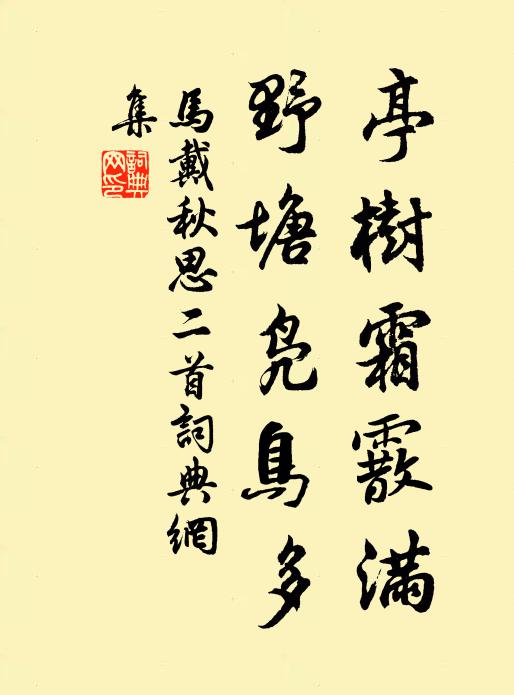 亭樹霜霰滿
野塘鳧鳥多
馬戴秋思二首詞典網
集
詞典網印